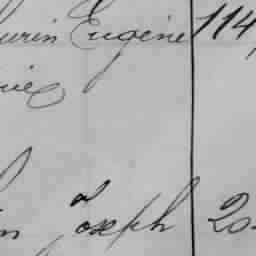 urin Eugène 114
rie
n Joseph 20